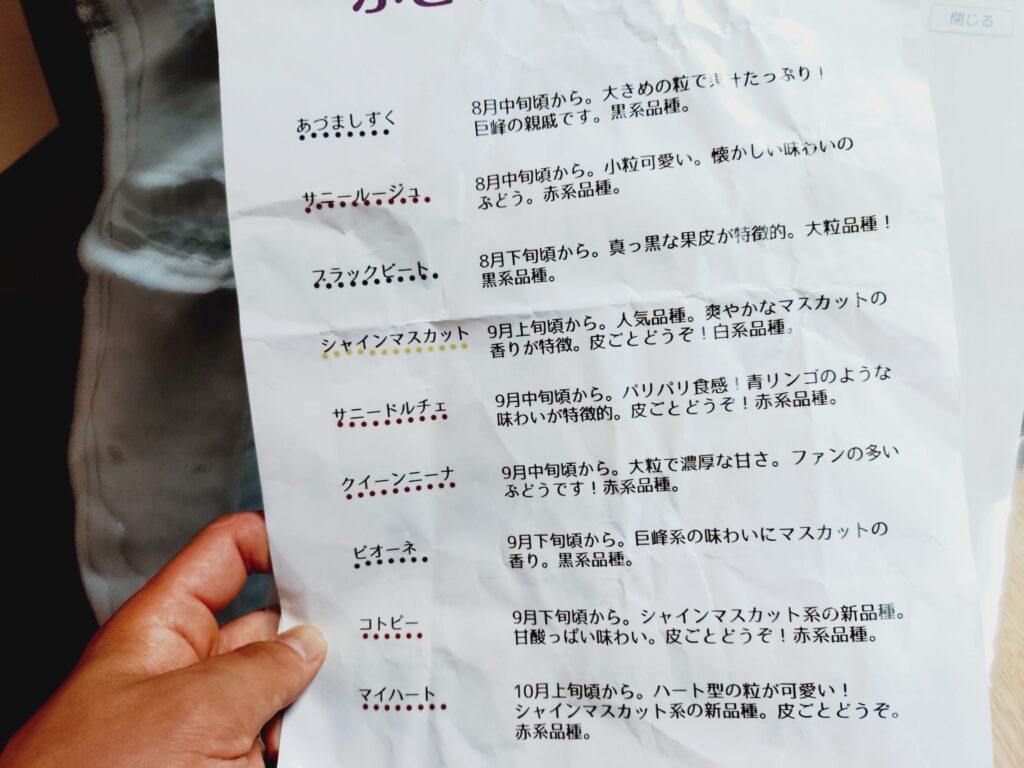 閉じる
あづましずく
8月中旬頃から。大きめの粒で果汁たっぷり！
巨峰の親戚です。黒系品種。
サニールージュ
8月中旬頃から。小粒可愛い。懐かしい味わいの
ぶどう。赤系品種。
ブラックビート
8月下旬頃から。真っ黒な果皮が特徴的。大粒品種！
黒系品種。
シャインマスカット
9月上旬頃から。人気品種。爽やかなマスカットの
香りが特徴。皮ごとどうぞ！白系品種。
サニードルチェ
9月中旬頃から。パリパリ食感！青リンゴのような
味わいが特徴的。皮ごとどうぞ！赤系品種。
クイーンニーナ
9月中旬頃から。大粒で濃厚な甘さ。ファンの多い
ぶどうです！赤系品種。
ピオーネ
9月下旬頃から。巨峰系の味わいにマスカットの
香り。黒系品種。
コトピー
9月下旬頃から。シャインマスカット系の新品種。
甘酸っぱい味わい。皮ごとどうぞ！赤系品種。
マイハート
10月上旬頃から。ハート型の粒が可愛い！
シャインマスカット系の新品種。皮ごとどうぞ。
赤系品種。